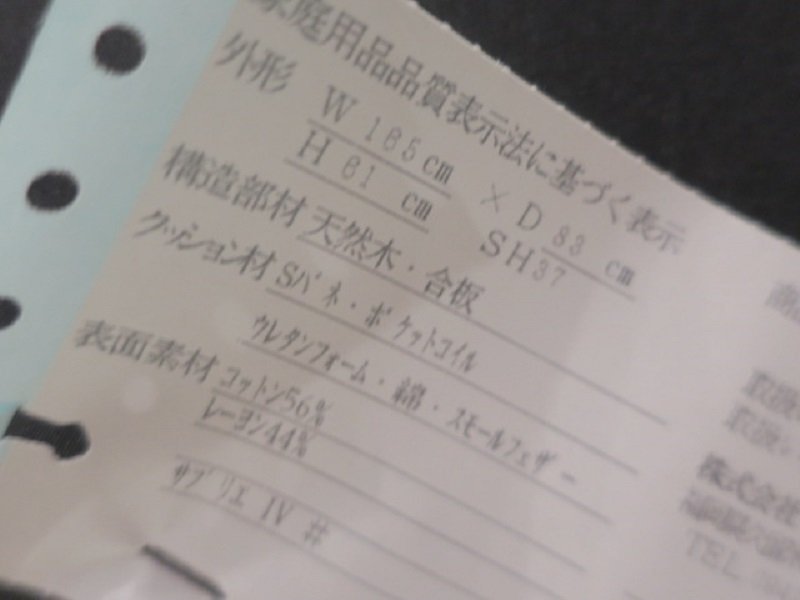 家庭用品品質表示法に基づく表示
外形 W 185cm × D 83 cm
H 81 cm SH37
構造部材 天然木・合板
クッション材 Sバネ・ポケットコイル
ウレタンフォーム・綿・スモールフェザー
表面素材 コットン56%
レーヨン44%
サブリエ IV #
取扱
取扱い
株式会社
TEL